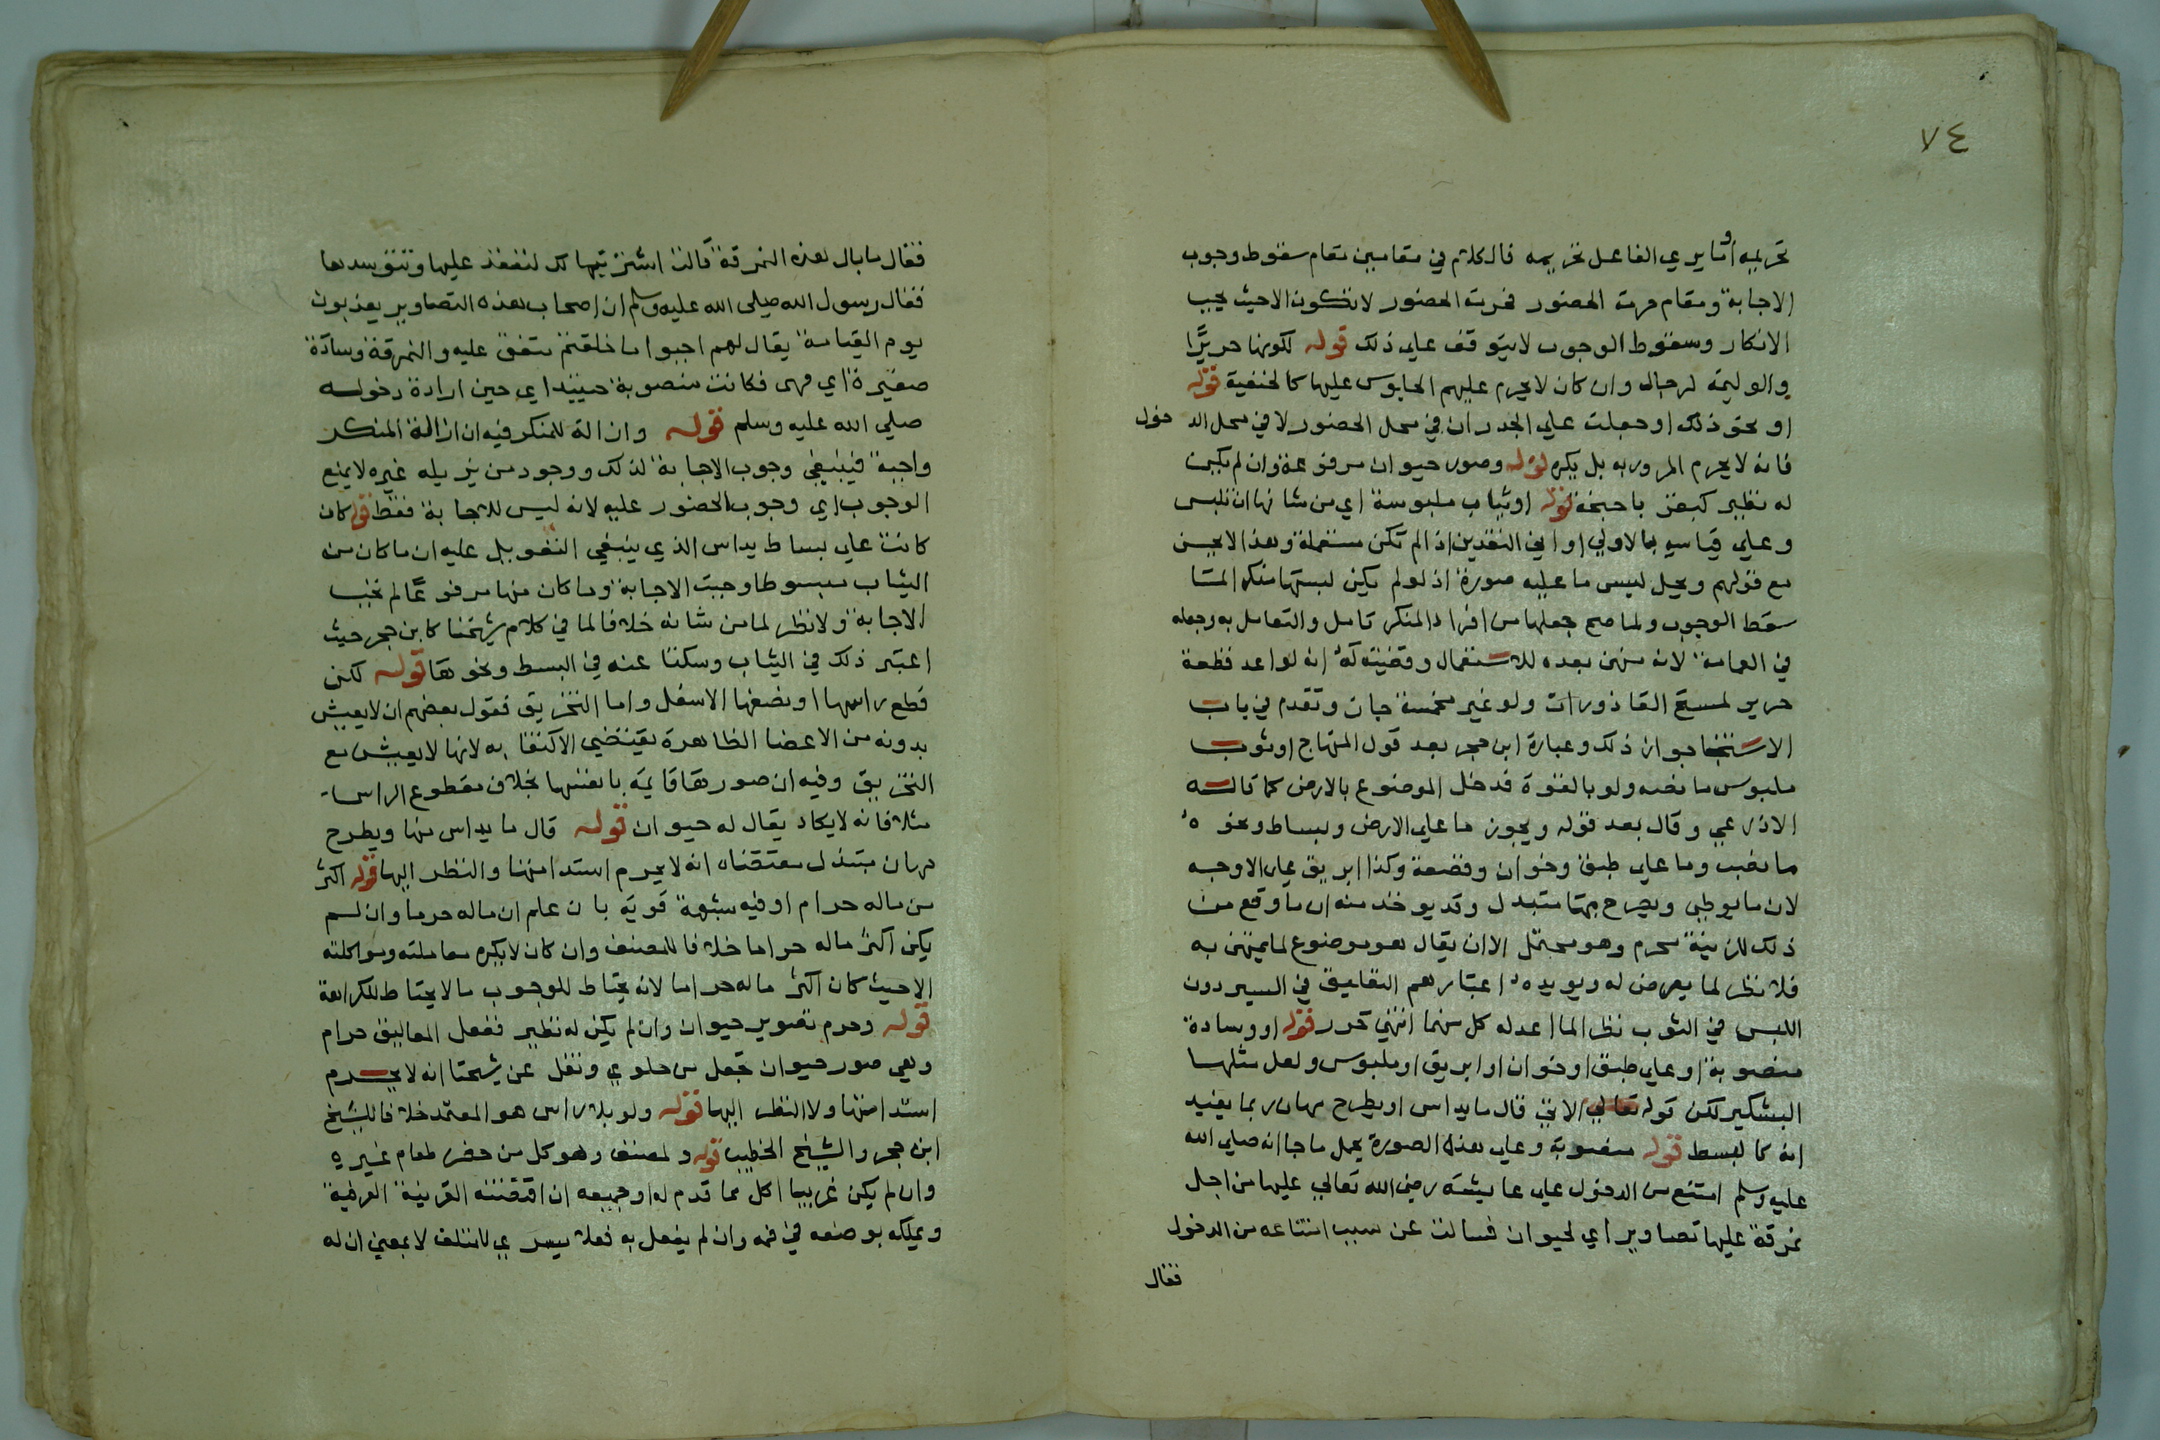 ٧٤
تحريمه او ما يري الفاعل تحريمه فالكلام في مقامين مقام سقوط وجوب
الاجابة ومقام حرمت الحضور فحرمت الحضور لا تكون الا حيث يجب
الانكار وسقوط الوجوب لا يتوقف علي ذلك قوله لكونها حريرًا
والوليمة لرجال وان كان لا يحرم عليهم الجلوس عليها كالحنفية قوله
او نحو ذلك او جعلت علي الجدران في محل الحضور لا في محل الدخول
فانه لا يحرم المرور به بل يكره قوله وصور حيوان مرفوعة وان لم يكن
له نظير كبقر باجنحة قوله او ثياب ملبوسة اي من شانها ان تلبس
وعلي قياسه بالاولي اواني النقدين اذا لم تكن مستعملة وهذا لا يحسن
مع قولهم ويحل لبس ما عليه صورة اذ لو لم يكن لبسها منكرا لما
سقط الوجوب ولما صح جعلها من افراد المنكر تامل والتعامل به وجعله
في العمامة لانه ممتهن بعده للاستعمال وقضيته انه لو اعد قطعة
حرير لمسح القاذورات ولو غير نجسة جاز وتقدم في باب
الاستنجا جواز ذلك وعبارة ابن حجر بعد قول المنهاج او ثوب
ملبوس ما نصه ولو بالقوة فدخل الموضوع بالارض كما قاله
الاذرعي وقال بعد قوله ويجوز ما علي الارض وبساط ونحوه
ما نصب وما علي طبق وخوان وقصعة وكذا ابريق علي الاوجه
لان ما يوطي ويطرح مهتا متبدل وقد يوخذ منه ان ما وقع من
ذلك للزينة محرم وهو محتمل الا ان يقال هو موضوع لما يمتهن به
فلا نظر لما يعرض له ويويده اعتبارهم التعليق في الستر دون
اللبس في الثوب نظرا لما اعد له كل منهما انتهي حرر قوله او وسادة
منصوبة او علي طبق او خوان او ابريق او ملبوس ولعل مثلها
البشكير لكن قوله تعالي الاتي قال ما يداس او يطرح مهان ربما يفيد
انه كالبسط قوله منصوبة وعلي هذه الصورة يحمل ما جا انه صلي الله
عليه وسلم امتنع من الدخول علي عايشة رضي الله تعالي عليها من اجل
نمرقة عليها تصاوير اي لحيوان فسالت عن سبب امتناعه من الدخول
فقال
فقال ما بال هذه النمرقة قالت اشتريتها لك لتقعد عليها وتتوسدها
فقال رسول الله صلي الله عليه وسلم ان اصحاب هذه التصاوير يعذبون
يوم القيامة يقال لهم احيوا ما خلقتم متفق عليه والنمرقة وسادة
صغيرة اي فهي فكانت منصوبة حينيذ اي حين ارادة دخوله
صلي الله عليه وسلم قوله وازالة للمنكر فيه ان ازالة المنكر
واجبة فينبغي وجوب الاجابة لذلك ووجود من يزيله غيره لا يمنع
الوجوب اي وجوب الحضور عليه لانه ليس للاجابة فقط قوله كان
كانت علي بساط يداس الذي ينبغي التعويل عليه ان ما كان من
الثياب مبسوطا وجبت الاجابة وما كان منها مرفوعًا لم تجب
الاجابة ولا نظر لما من شانه خلافا لما في كلام شيخنا كابن حجر حيث
اعتبر ذلك في الثياب وسكتا عنه في البسط ونحوها قوله لكن
قطع راسها او نصفها الاسفل واما التخزيق فقول بعضهم ان لا يعيش
بدونه من الاعضا الظاهرة يقتضي الاكتفا به لانها لا يعيش مع
التخزيق وفيه ان صورها قايمة باعينها بخلاف مقطوع الراس
مثلا فانه لا يكاد يقال له حيوان قوله قال ما يداس منها ويطرح
مهان مبتذل مقتضاه انه لا يحرم استدامتها والنظر اليها قوله اكثر
من ماله حرام او فيه شبهة قوية بان علم ان ماله حرما وان لم
يكن اكثر ماله حراما خلافا للمصنف وان كان لا يكره معاملته ومواكلته
الا حيث كان اكثر ماله حراما لانه يحتاط للوجوب ما لا يحتاط للكراهة
قوله وحرم تصوير حيوان وان لم يكن له نظير ففعل المعاليق حرام
وهي صور حيوان تجعل من حلوي ونقل عن شيخنا انه لا يحرم
استدامتها ولا النظر اليها قوله ولو بلا راس هو المعتمد خلافا للشيخ
ابن حجر والشيخ الخطيب قوله ولمصنف وهو كل من حضر طعام غيره
وان لم يكن غريبا اكل مما قدم له او جميعه ان اقتضته القرينة العرفية
ويملكه بوضعه في فمه وان لم يفعل به فعلا يسري للتلف لا بمعني ان له